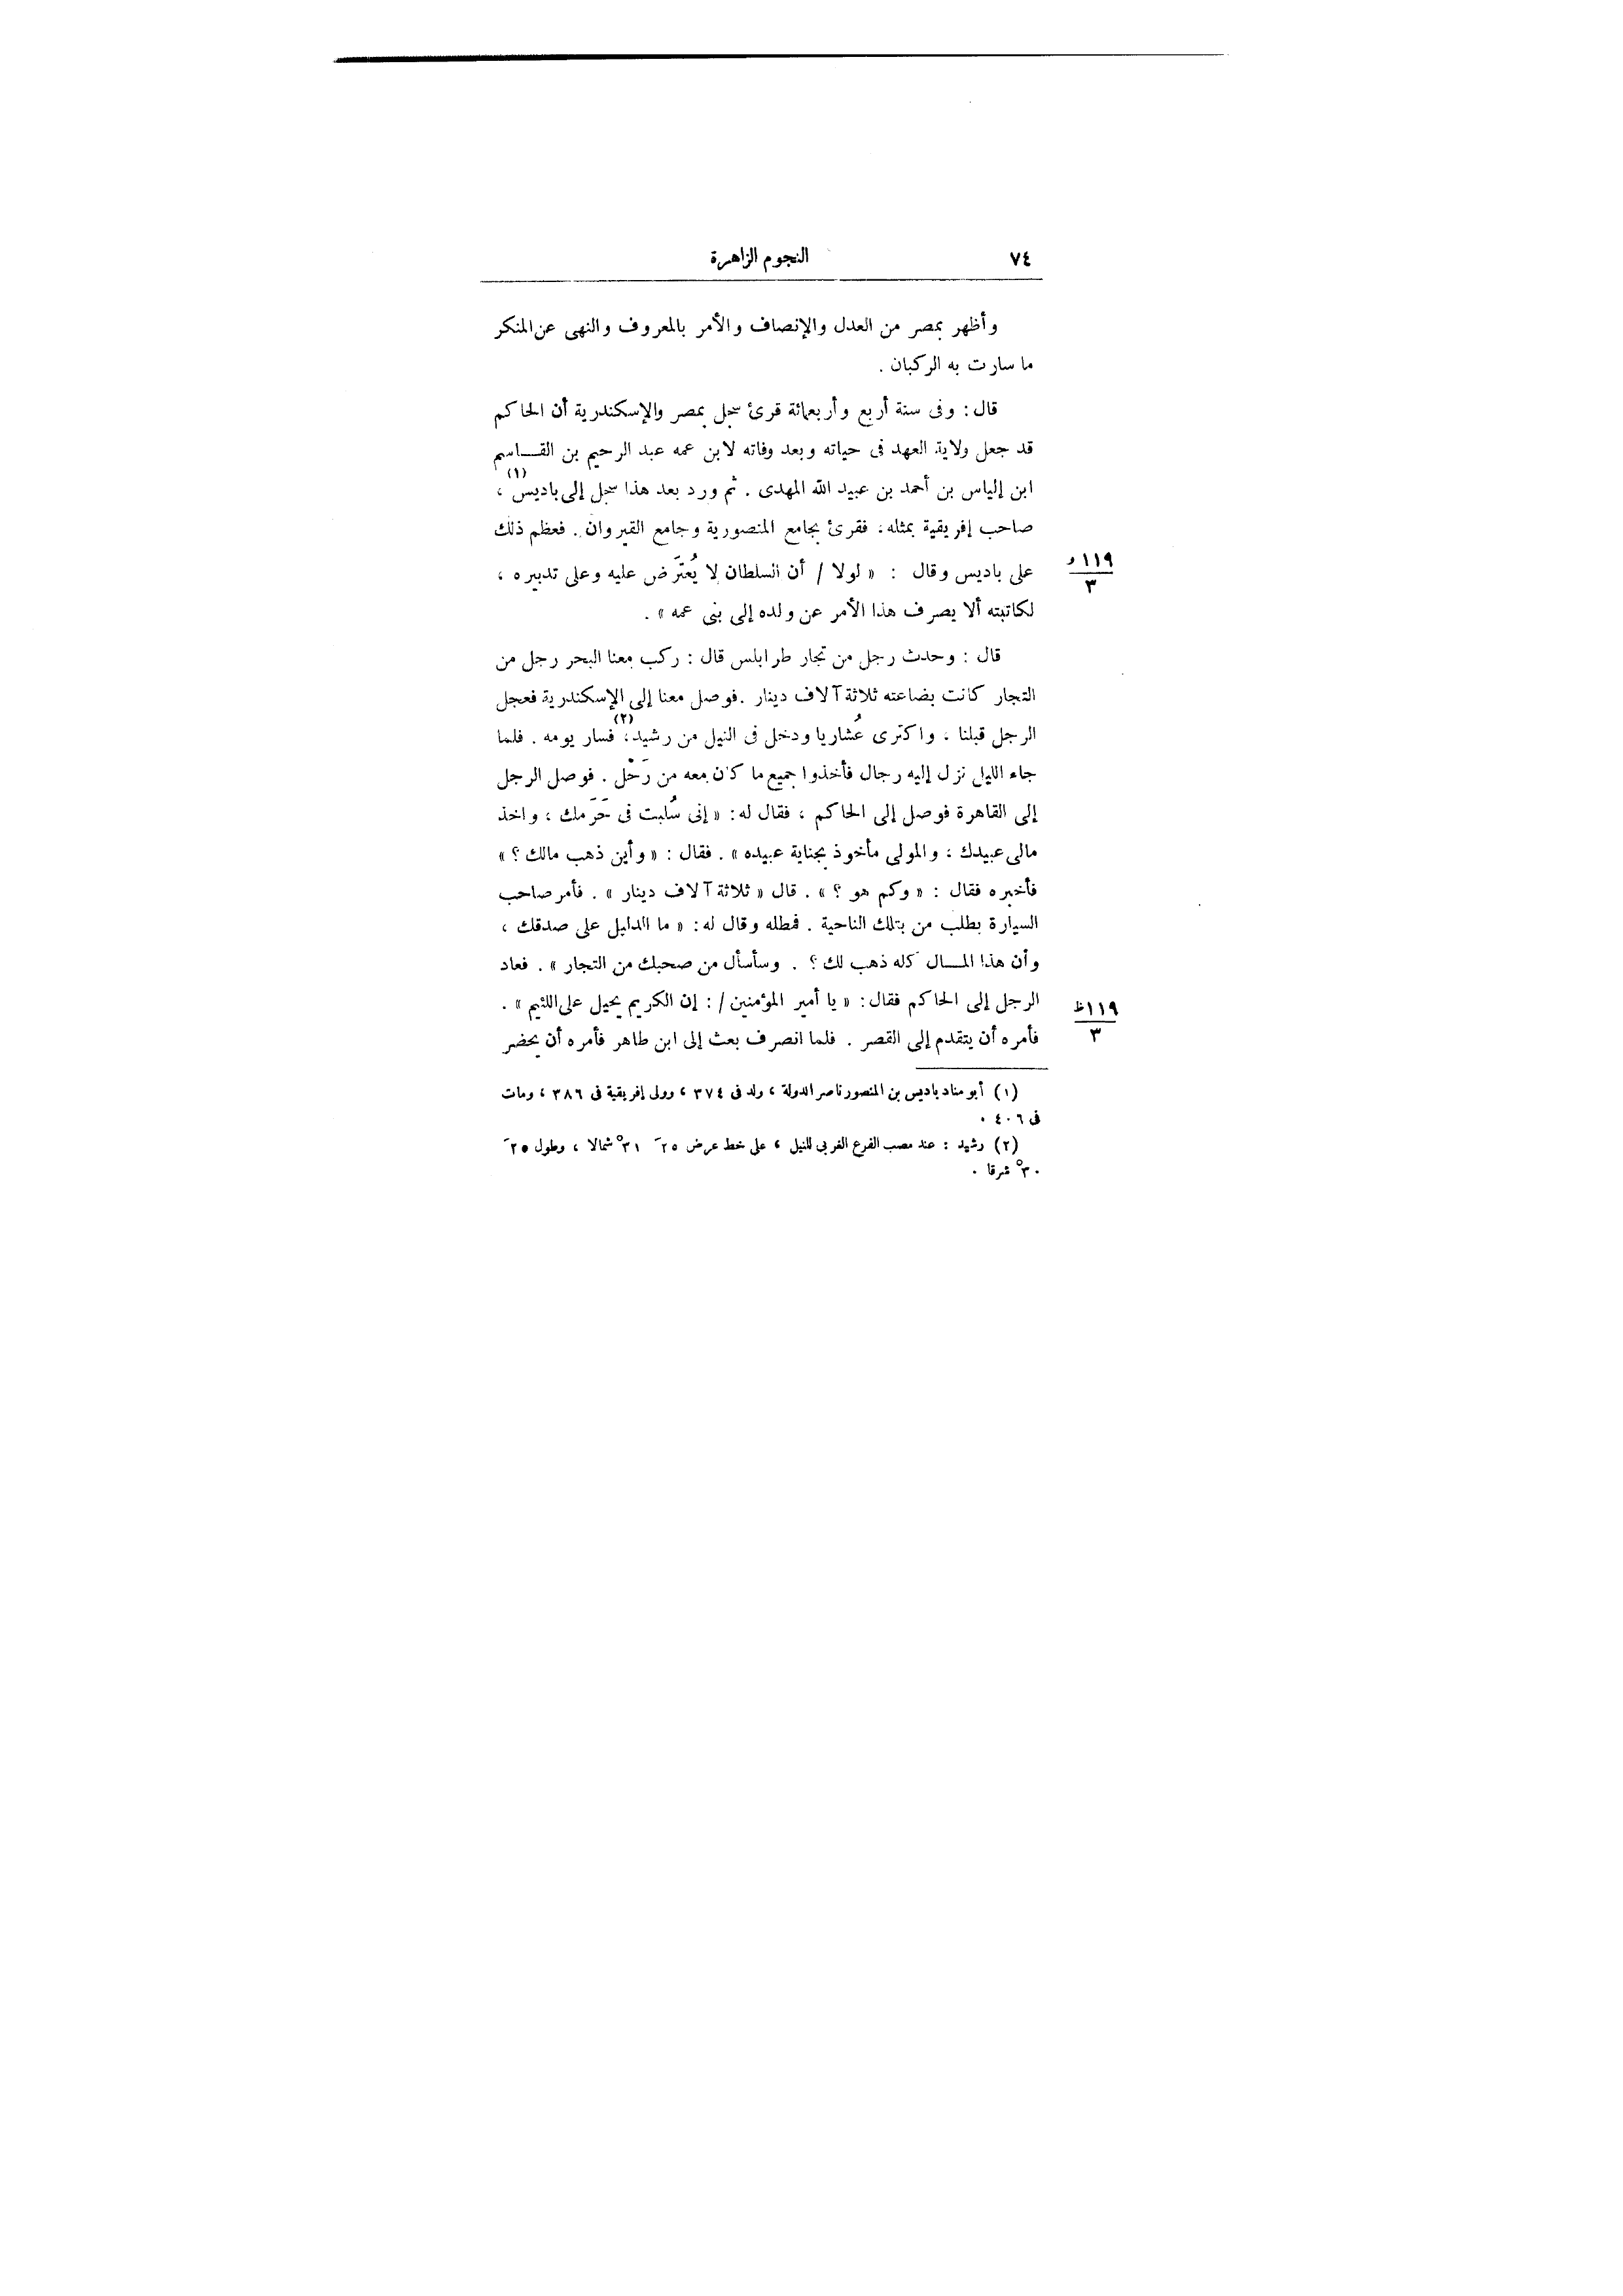 ٧٤ النجوم الزاهرة
وأظهر بمصر من العدل والإنصاف والأمر بالمعروف والنهى عن المنكر
ما سارت به الركبان .
قال : وفى سنة أربع وأربعمائة قرئ سجل بمصر والإسكندرية أن الحاكم
قد جعل ولاية العهد فى حياته وبعد وفاته لابن عمه عبد الرحيم بن القـــاسم
ابن إلياس بن أحمد بن عبيد الله المهدى . ثم ورد بعد هذا سجل إلى باديس (١) ،
صاحب إفريقية بمثله ، فقرئ بجامع المنصورية وجامع القيروان . فعظم ذلك
على باديس وقال : « لولا / أن السلطان لا يُعتَرض عليه وعلى تدبيره ،
١١٩ و
٣
لكاتبته ألا يصرف هذا الأمر عن ولده إلى بنى عمه » .
قال : وحدث رجل من تجار طرابلس قال : ركب معنا البحر رجل من
التجار كانت بضاعته ثلاثة آلاف دينار . فوصل معنا إلى الإسكندرية فعجل
الرجل قبلنا ، واكترى عُشاريا ودخل فى النيل من رشيد (٢) ، فسار يومه . فلما
جاء الليل نزل إليه رجال فأخذوا جميع ما كان معه من رَحْل . فوصل الرجل
إلى القاهرة فوصل إلى الحاكم ، فقال له : « إنى سُلبت فى حَرَمك ، واخذ
مالى عبيدك ، والمولى مأخوذ بجناية عبيده » . فقال : « وأين ذهب مالك ؟ »
فأخبره فقال : « وكم هو ؟ » . قال « ثلاثة آلاف دينار » . فأمر صاحب
السيارة بطلب من بتلك الناحية . فمطله وقال له : « ما الدليل على صدقك ،
وأن هذا المـــال كله ذهب لك ؟ . وسأسأل من صحبك من التجار » . فعاد
الرجل إلى الحاكم فقال : « يا أمير المؤمنين / : إن الكريم يحيل على اللئيم » .
١١٩ ظ
٣
فأمره أن يتقدم إلى القصر . فلما انصرف بعث إلى ابن طاهر فأمره أن يحضر
(١) أبو مناد باديس بن المنصور ناصر الدولة ، ولد فى ٣٧٤ ، وولى إفريقية فى ٣٨٦ ، ومات
فى ٤٠٦ .
(٢) رشيد : عند مصب الفرع الغربى للنيل ، على خط عرض ٢٥َ ٣١ْ شمالا ، وطول ٢٥َ
٣٠ْ شرقا .